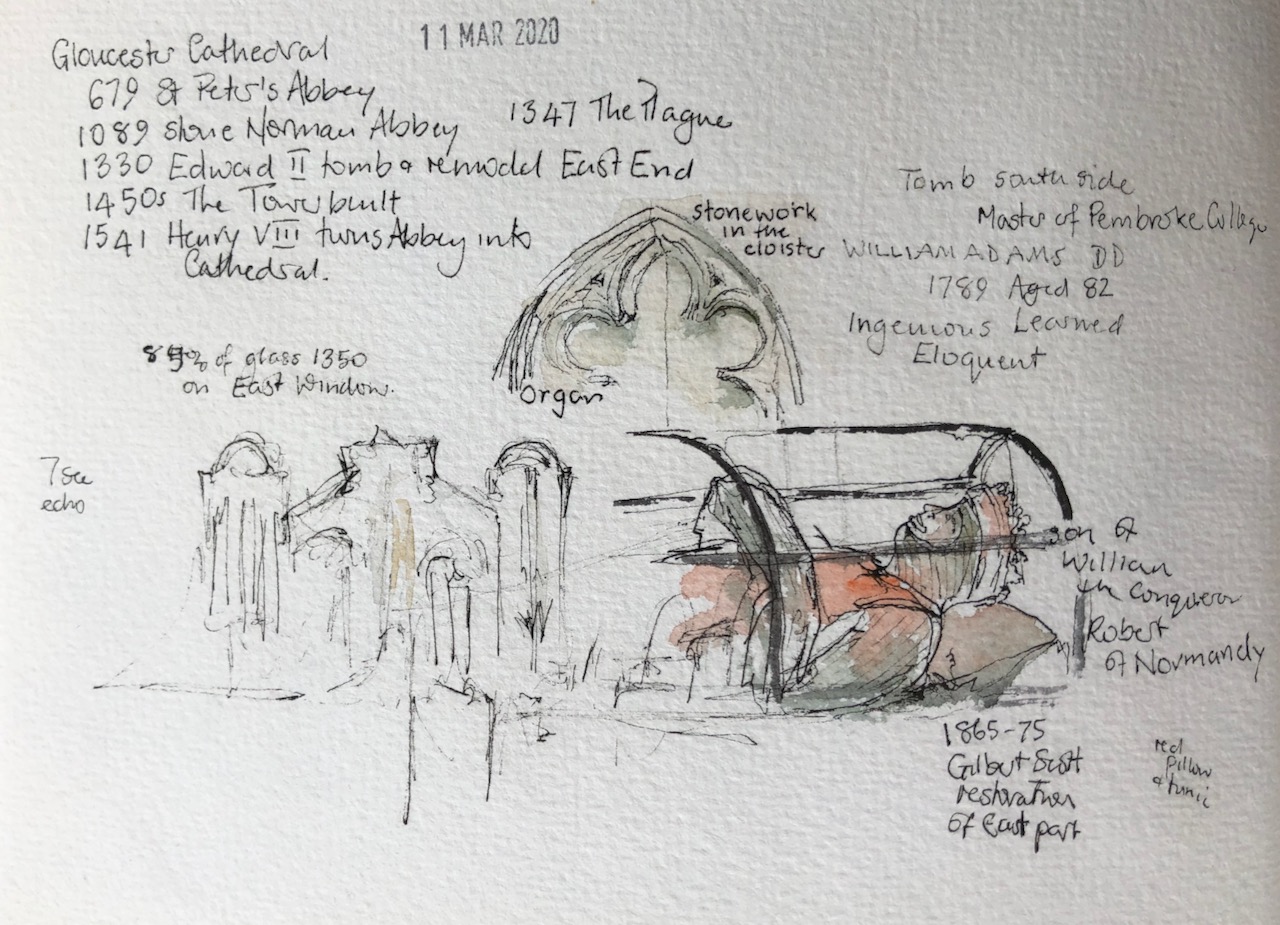 11 MAR 2020
Gloucester Cathedral
679 St Peter's Abbey
1089 stone Norman Abbey
1347 The Plague
1330 Edward II tomb & remodel East End
1450s The Tower built
1541 Henry VIII turns Abbey into
Cathedral.
stonework
in the
cloister
Tomb south side
Master of Pembroke College
WILLIAM ADAMS DD
1789 Aged 82
Ingenious Learned
Eloquent
% of glass 1350
on East Window.
Organ
7 sec
echo
son of
William
the Conqueror
Robert
of Normandy
1865-75
Gilbert Scott
restoration
of East part
red
pillow
& tunic